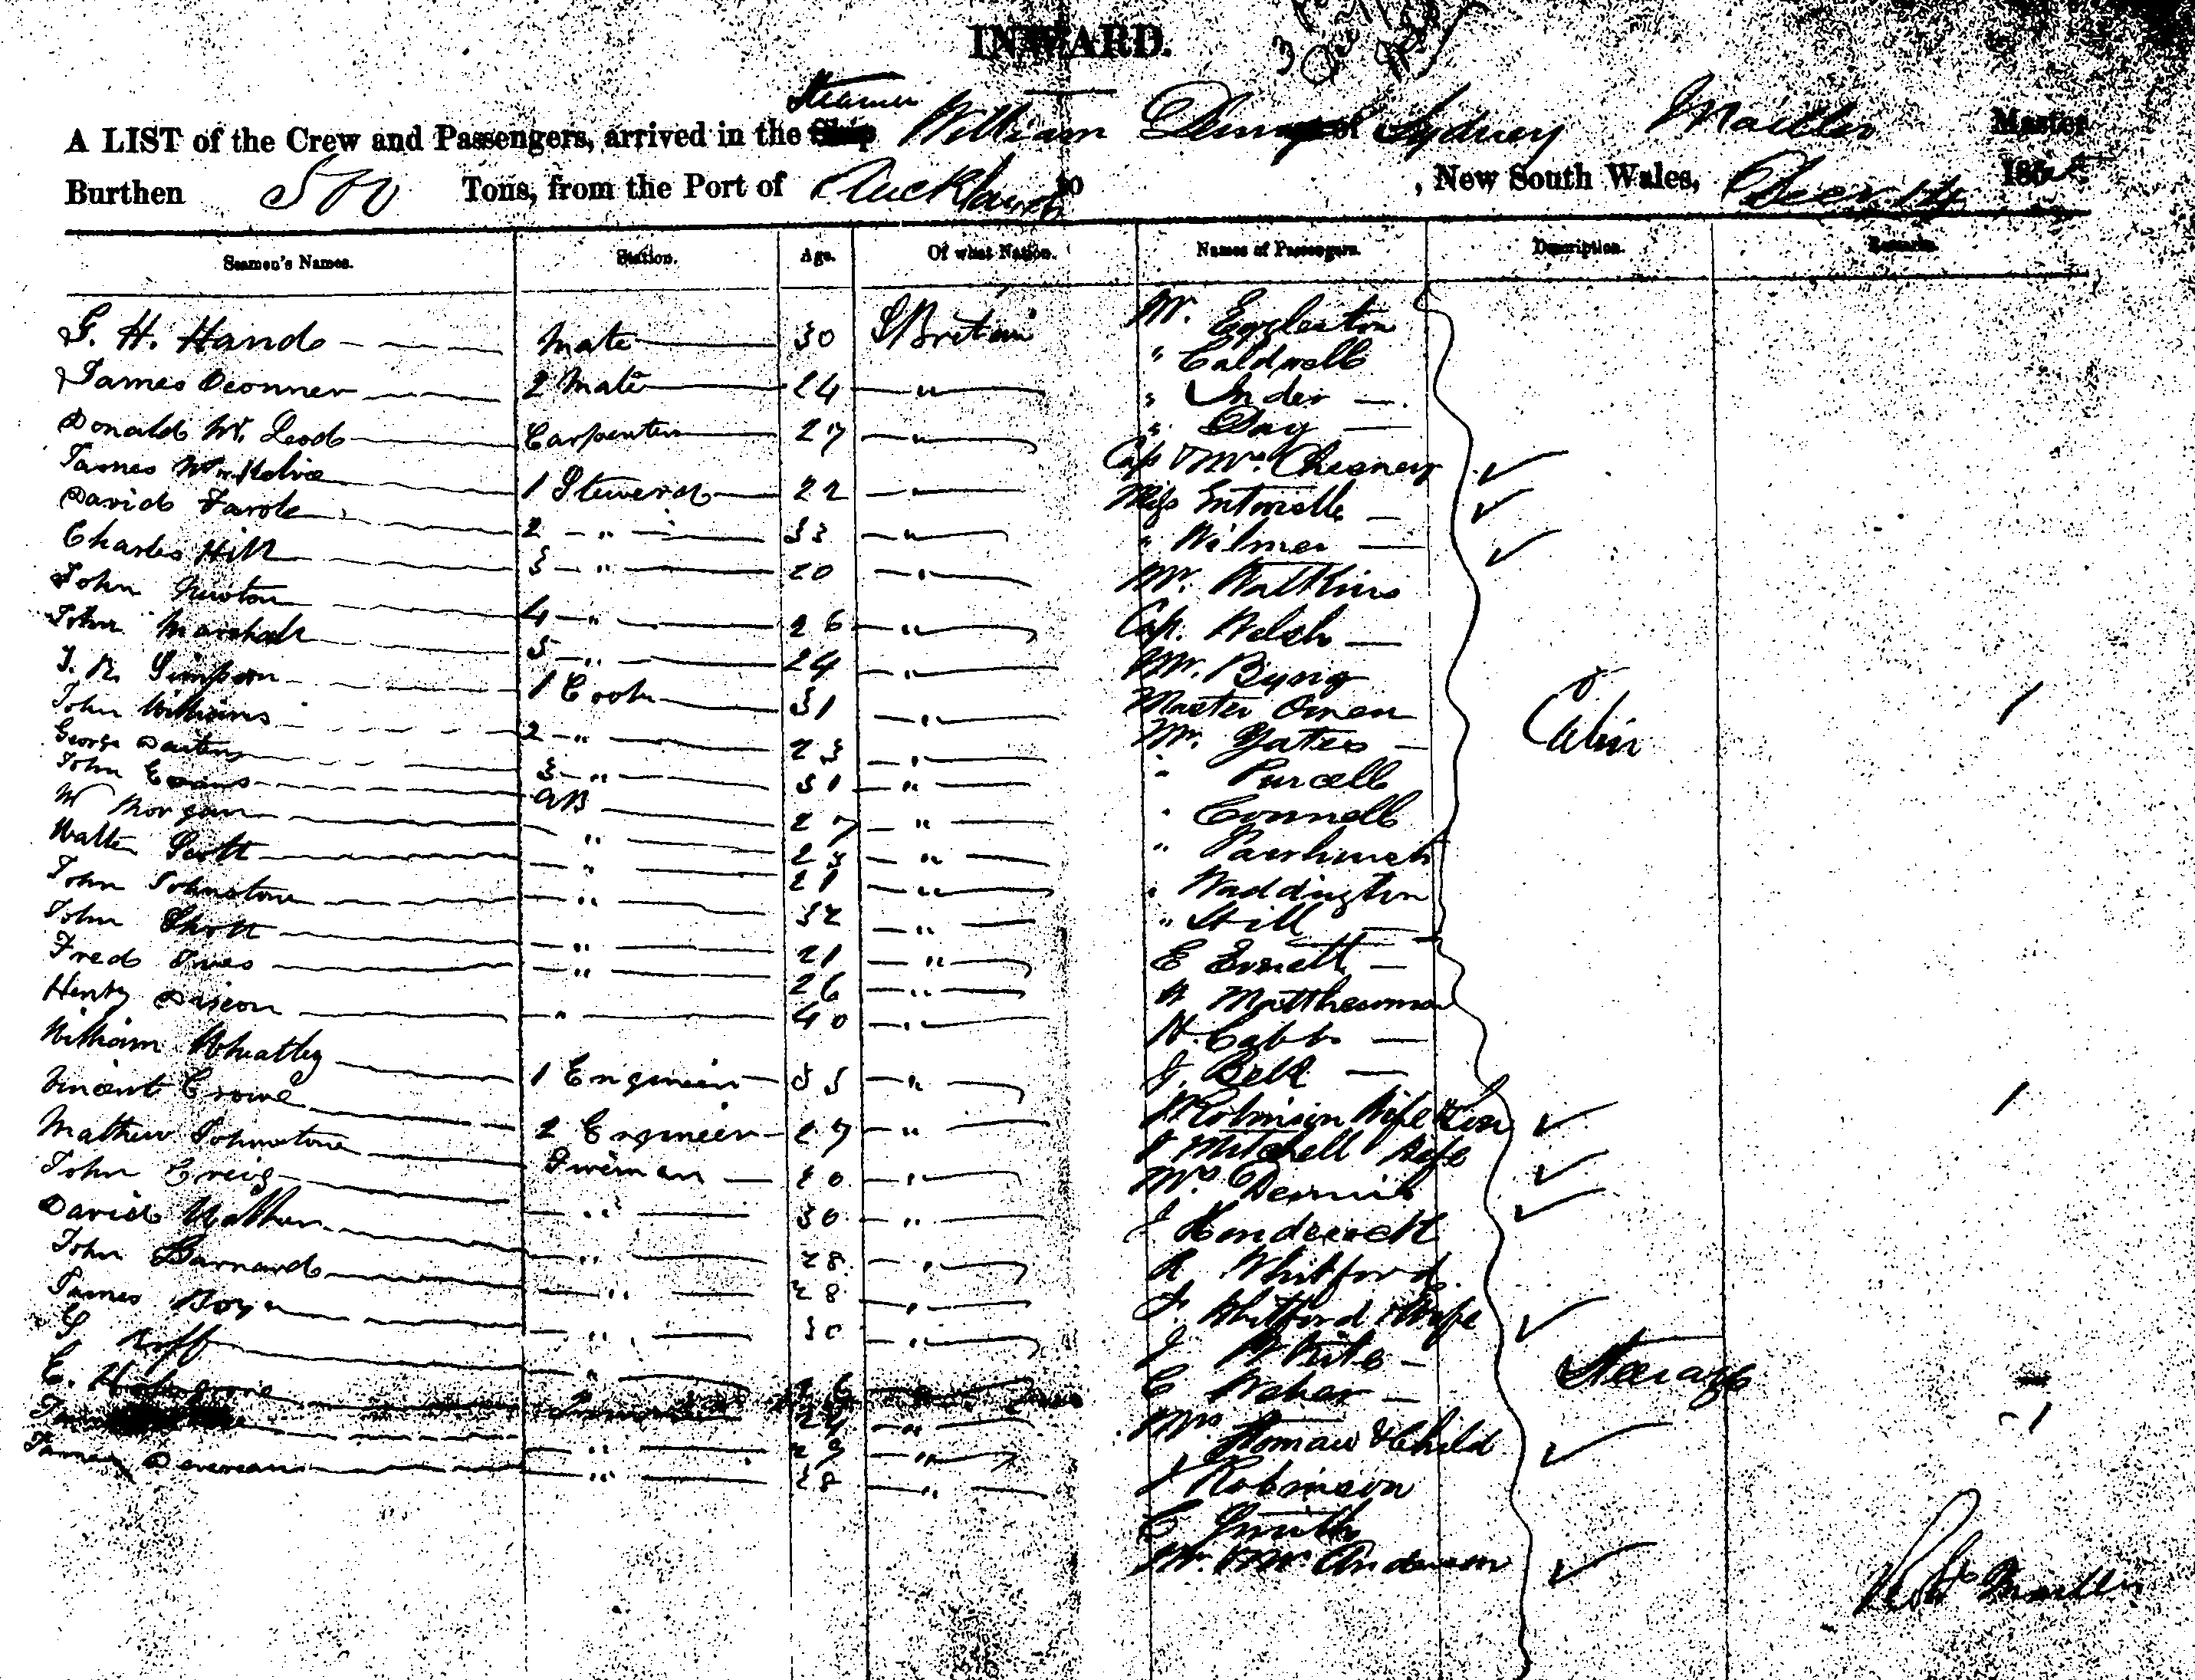 INWARD.
Steamer
A LIST of the Crew and Passengers, arrived in the Ship William Denny of Sydney Mailler Master
Burthen 500 Tons, from the Port of Auckland to , New South Wales, Decr 14 185
Seamen's Names. Station. Age. Of what Nation. Names of Passengers. Description. Remarks.
G. H. Hand Mate 30 G Britain
James Oconner 2 Mate 24 "
Donald Mc. Leod Carpenter 27 "
James 1 Steward 22 "
David 2 " 33 "
Charles Hill 3 " 20 "
John Newton 4 " 26 "
John Marshall 5 " 24 "
J. R. Simpson 1 Cook 31 "
John Williams 2 " 23 "
George 3 " 31 "
John Evans AB 27 "
W Morgan " 23 "
Walter Scott " 21 "
John Johnstone " 32 "
John Short " 21 "
Fred Ives " 26 "
Henry Dixon " 40 "
William Wheatley 1 Engineer 35 "
Vincent Crowe 2 Engineer 27 "
Mathew Johnstone Fireman 20 "
John Creig " 30 "
David " 28 "
John Barnard " 28 "
James Boyn " 30 "
G Roff " 26 "
C. 24 "
" 27 "
James Devereau " 28 "
Mr. Eggleston
" Caldwell
" Inder
" Day
Cap & Mrs. Chesney
Miss Entwislle
" Wilmer
Mr. Watkins
Cap. Welsh
Mr. Byng
Master Owen
Mr. Yates
" Purcell
" Connell
"
" Waddington
" Still
E Everett
Matthewman
H. Cabb
J. Bell
Robinson Wife & Son
J Mitchell Wife
Mrs
J
R Whitford
J. Whitford & Wife
J White
C Weber
Mrs & Child
J Robinson
C Smith
Mr. & Mrs. Anderson
Cabin
Steerage
Robt Mailler